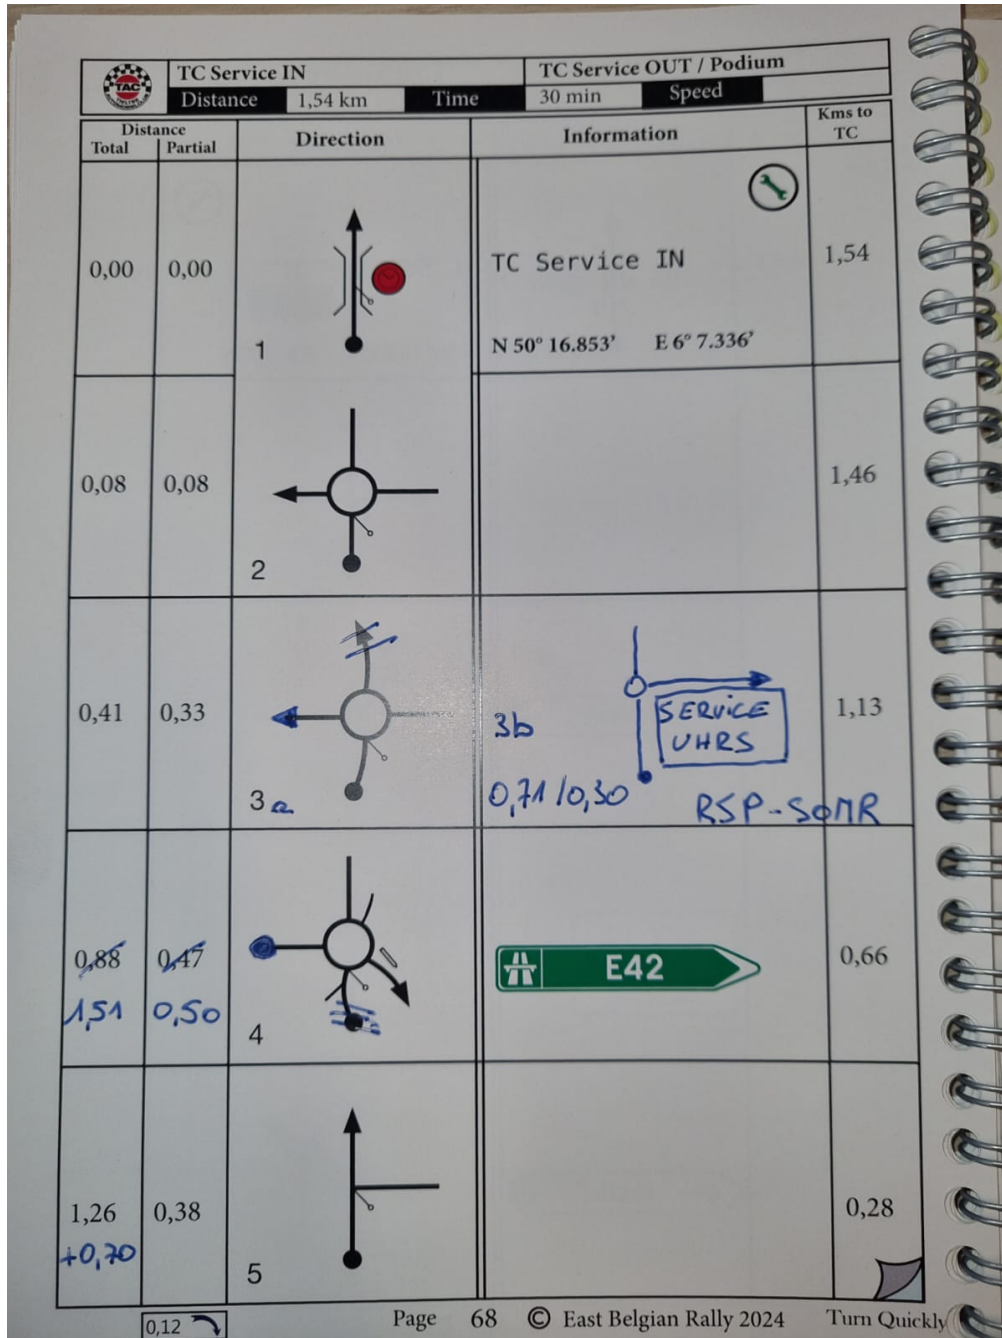 TAC
TC Service IN
TC Service OUT / Podium
Distance 1,54 km Time 30 min Speed
Distance
Total Partial
Direction
Information
Kms to
TC
0,00 0,00
1
TC Service IN
N 50° 16.853’ E 6° 7.336’
1,54
0,08 0,08
2
1,46
0,41 0,33
3a
3b
0,71/0,30
SERVICE
UHRS
RSP-SOMR
1,13
0,88 0,47
1,51 0,50
4
E42
0,66
1,26 0,38
+0,70
5
0,28
0,12
Page 68 © East Belgian Rally 2024 Turn Quickly